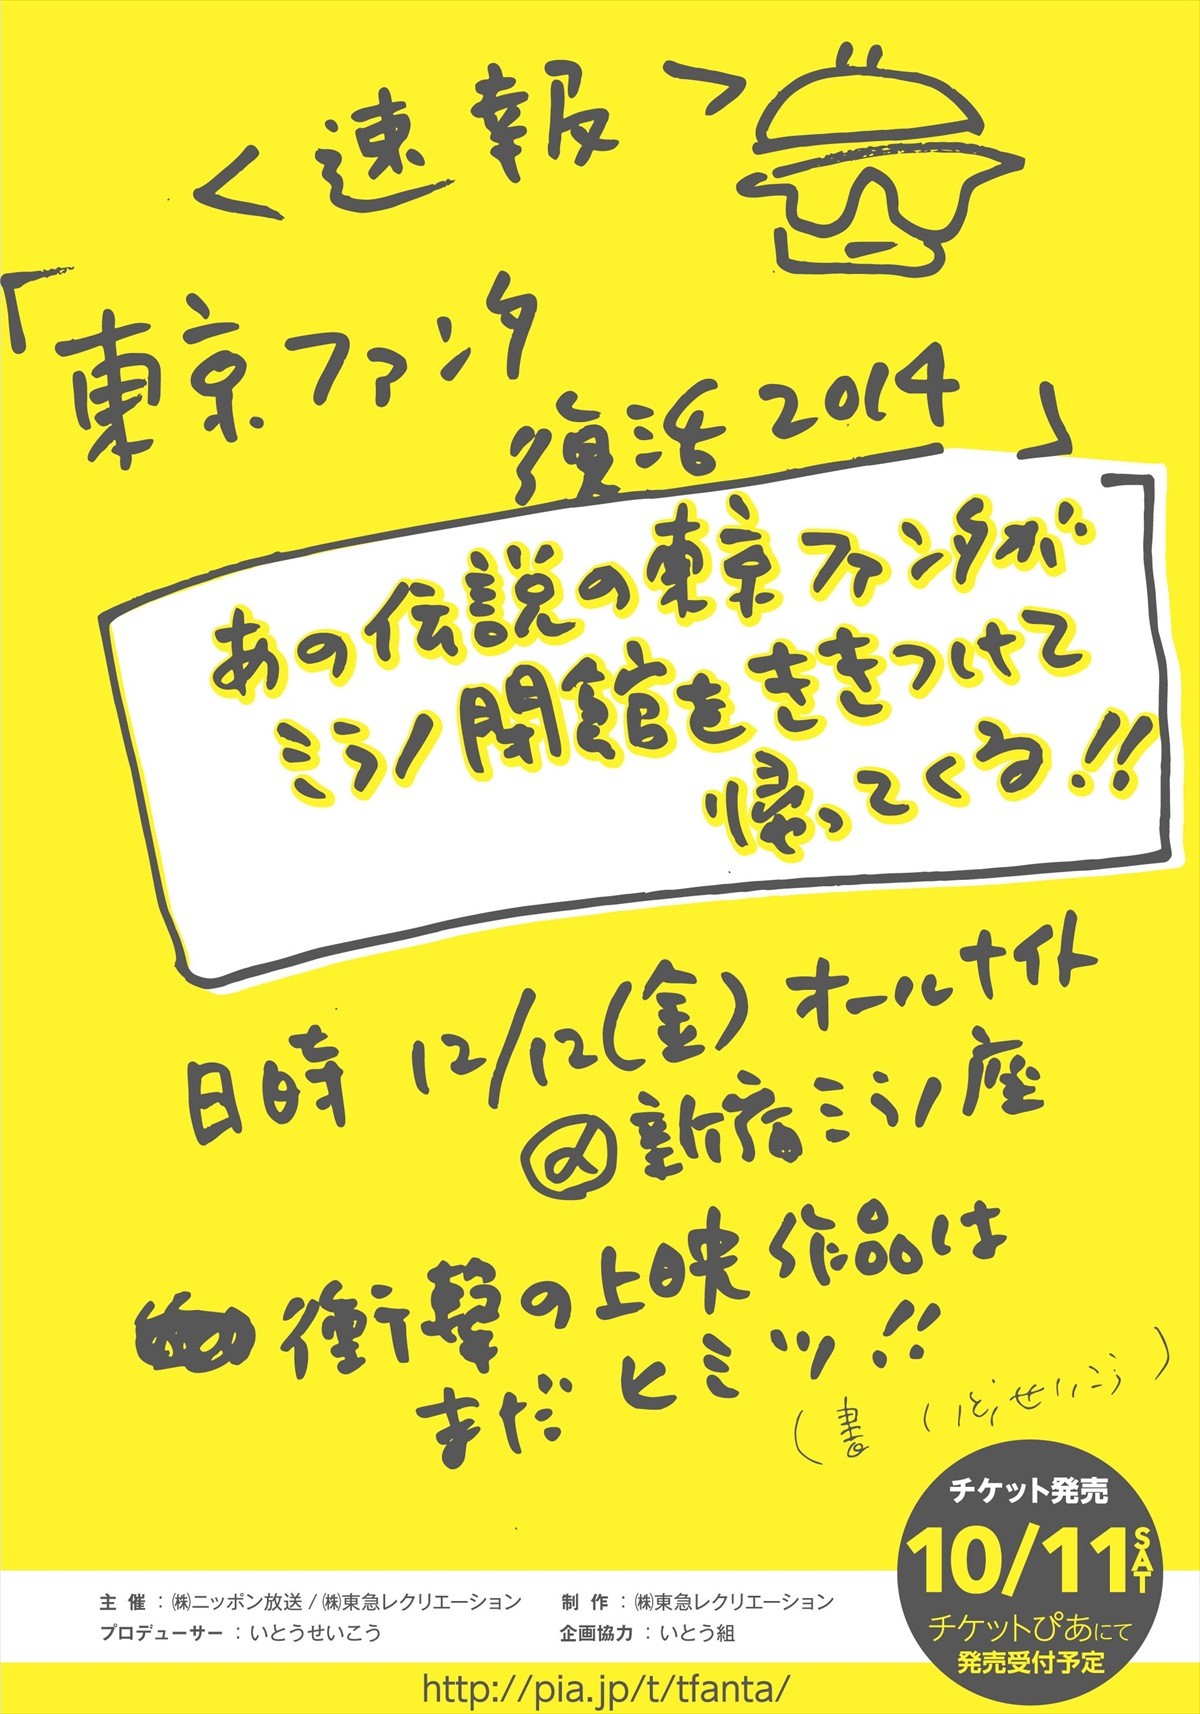 <速報>
「東京ファンタ
復活2014」
あの伝説の東京ファンタが
ミラノ閉館をききつけて
帰ってくる!!
日時 12/12(金) オールナイト
@新宿ミラノ座
衝撃の上映作品は
まだヒミツ!!
(書 いとうせいこう)
チケット発売
10/11 SAT
チケットぴあにて
発売受付予定
主 催 : ㈱ニッポン放送 / ㈱東急レクリエーション 制 作 : ㈱東急レクリエーション
プロデューサー : いとうせいこう 企画協力 : いとう組
http://pia.jp/t/tfanta/